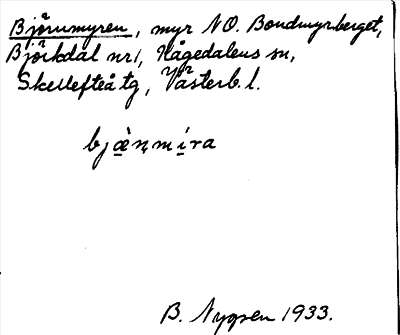 Björnmyren, myr NO. Bondmyrberget,
Björkdal nr 1, Hågedalens sn,
Skellefteå tg, Västerb. l.
bjæ̀ṇmíra
B. Nygren 1933.